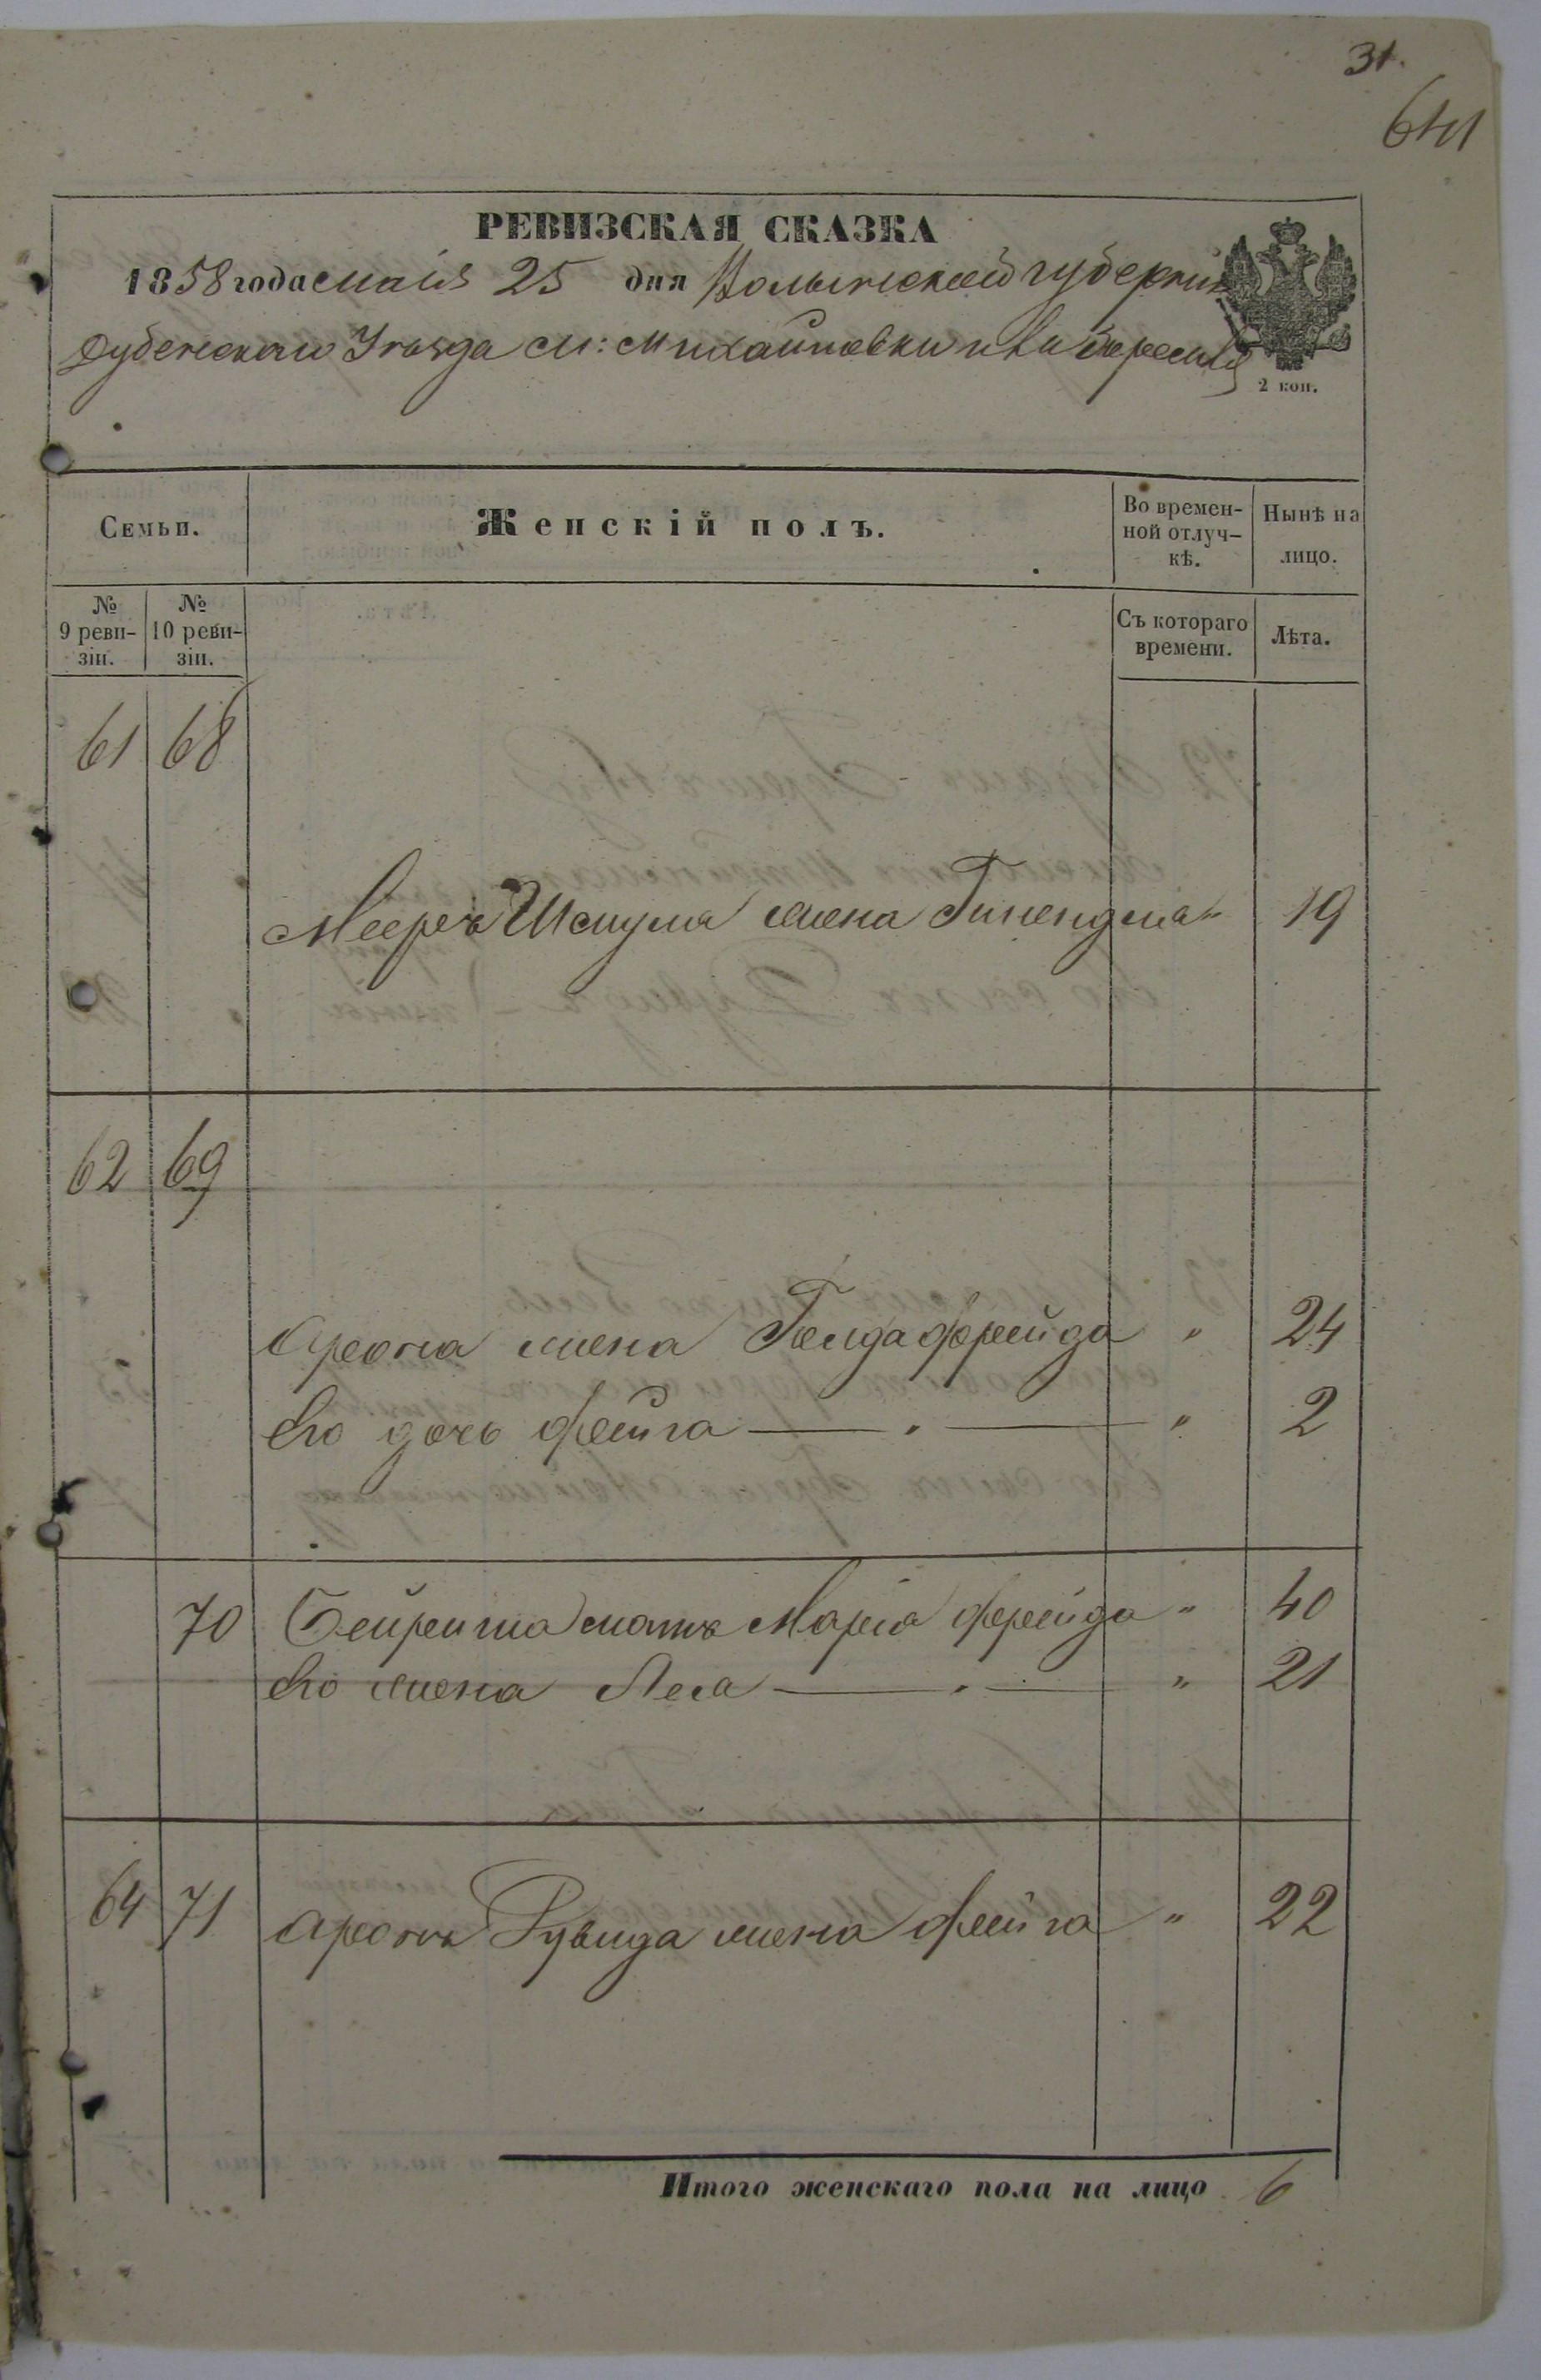 31.
641
РЕВИЗСКАЯ СКАЗКА
1858 года маія 25 дня Волынской губерніи
Дубенскаго Уѣзда м: Михайловки
2 коп.
Семьи.
Женскій полъ.
Во времен-
ной отлуч-
кѣ.
Нынѣ на
лицо.
№
9 реви-
зіи.
№
10 реви-
зіи.
Съ котораго
времени.
Лѣта.
61 68
Мееръ Шмуля жена Гинендля " 19
62 69
Арона жена Голда Фрейда " 24
Его дочь Фейга " 2
70 Бейреиша мать Маріа Фрейда " 40
Его жена Леа " 21
64 71 Аронъ Рувида жена Фейга " 22
Итого женскаго пола на лицо 6